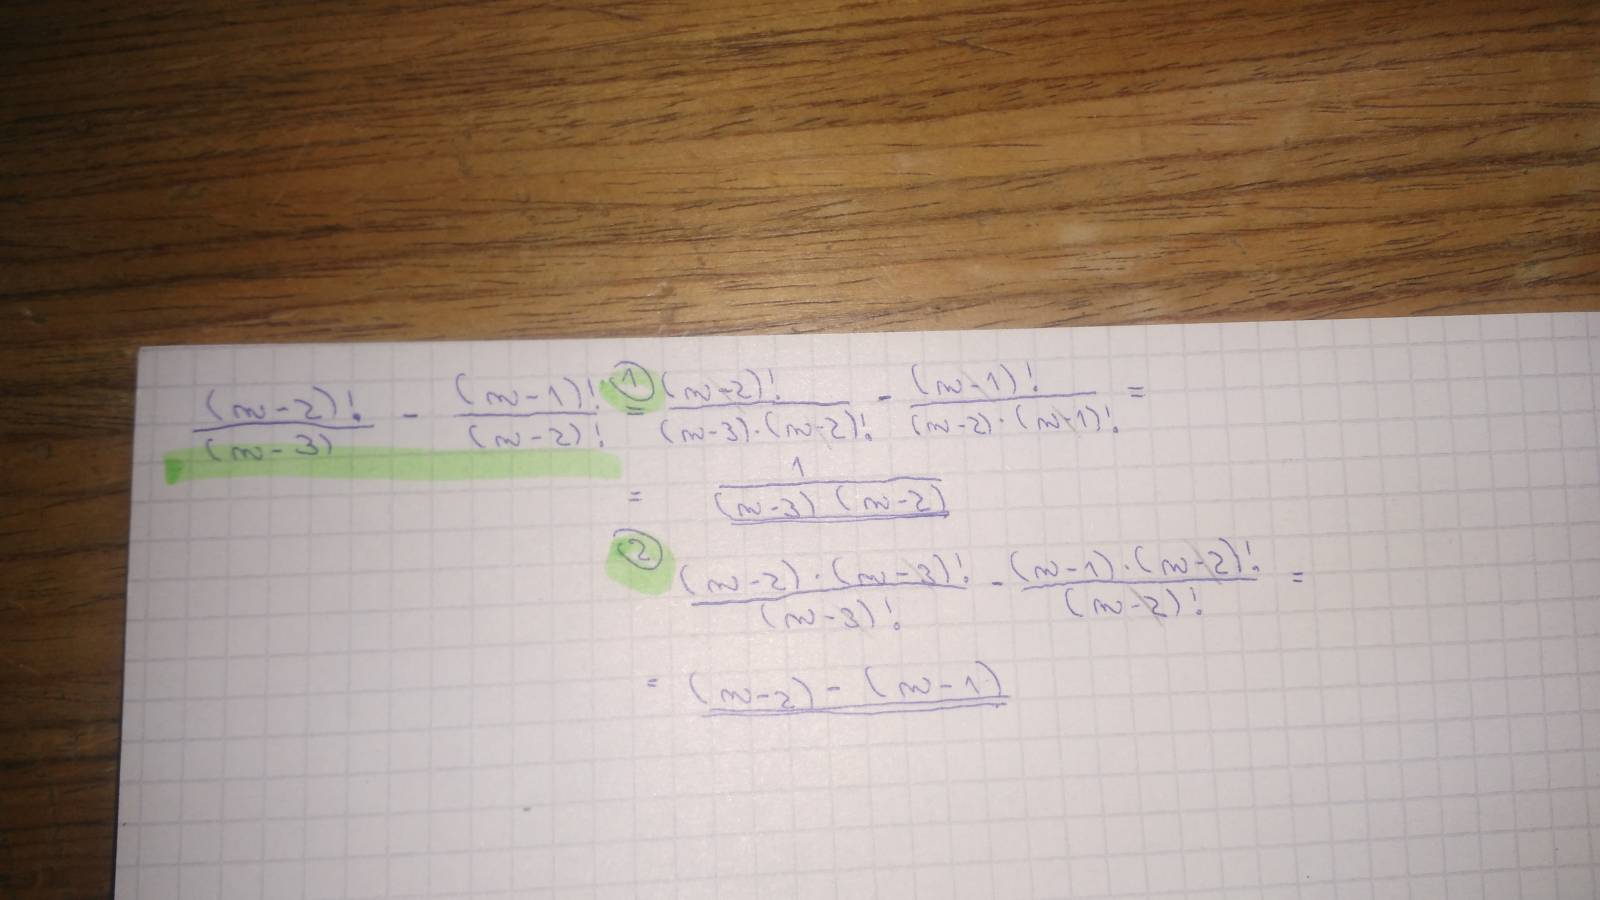 (n-2)!/(n-3) - (n-1)!/(n-2)! = ① (n-2)!/(n-3)·(n-2)! - (n-1)!/(n-2)·(n-1)! =
= 1/(n-3) (n-2)
② (n-2)·(n-3)!/(n-3)! - (n-1)·(n-2)!/(n-2)! =
= (n-2) - (n-1)